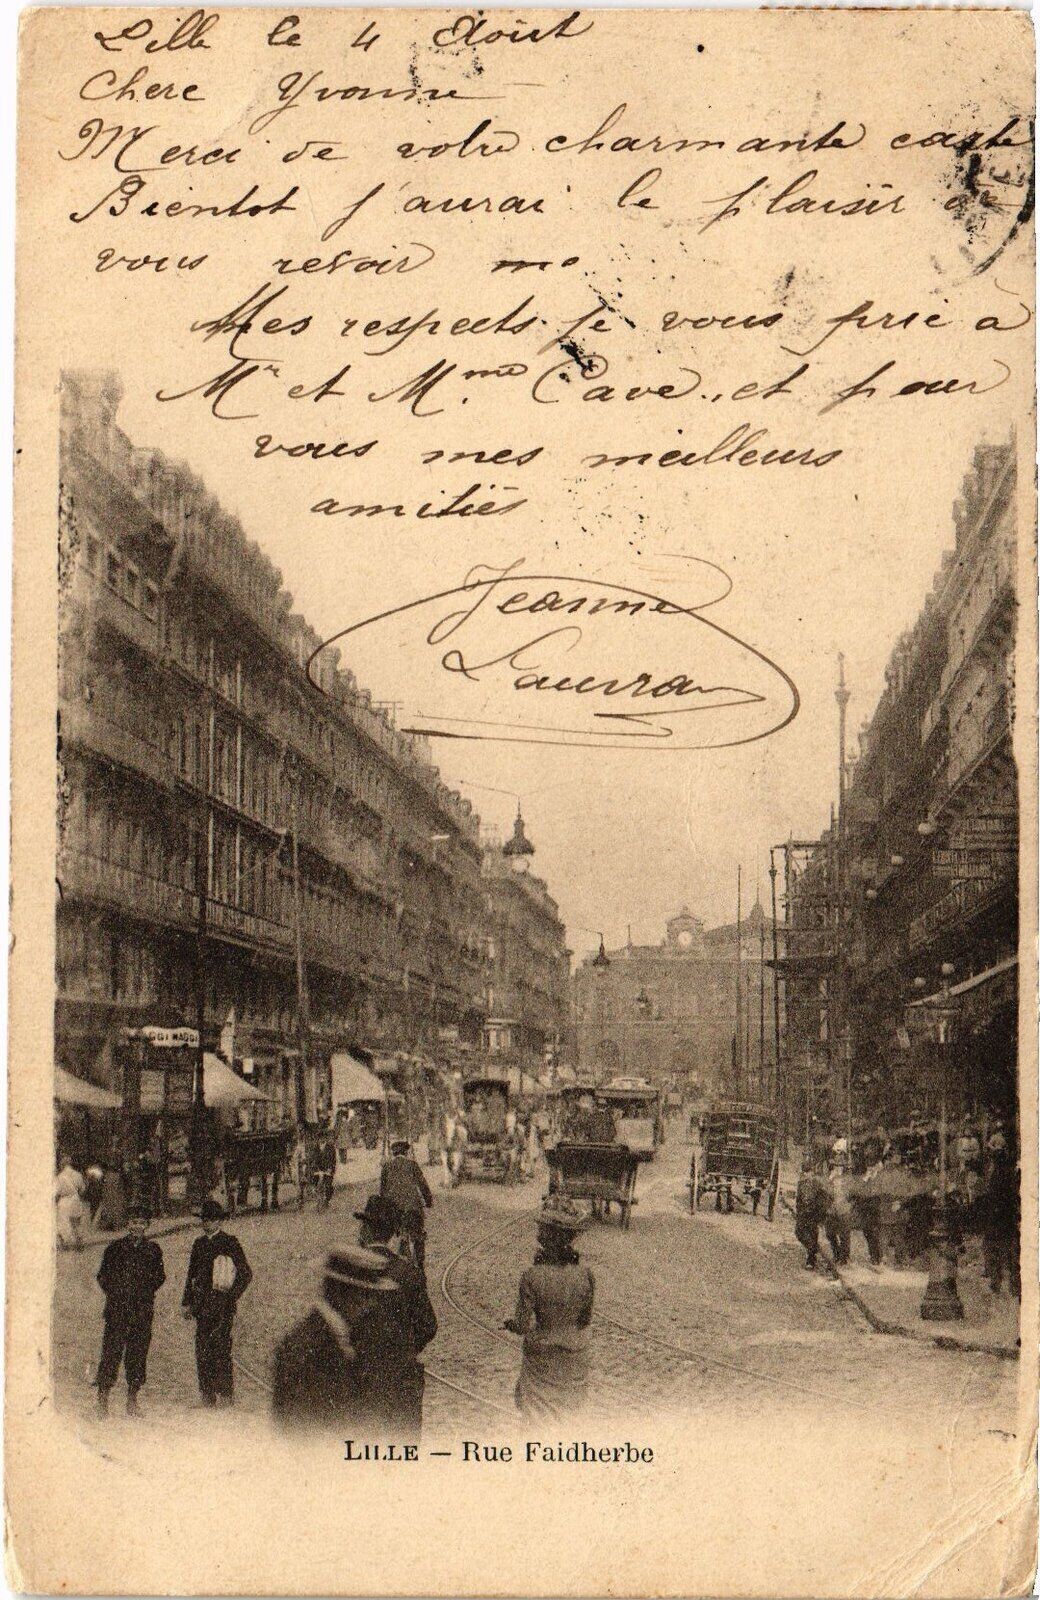 Lille le 4 Août
Chere Yvonne
Merci de votre charmante carte
Bientot j'aurai le plaisir de
vous revoir
Mes respects je vous prie à
Mr et Mme. Cave., et pour
vous mes meilleurs
amitiés
Jeanne
GGI MAGGI
LILLE — Rue Faidherbe